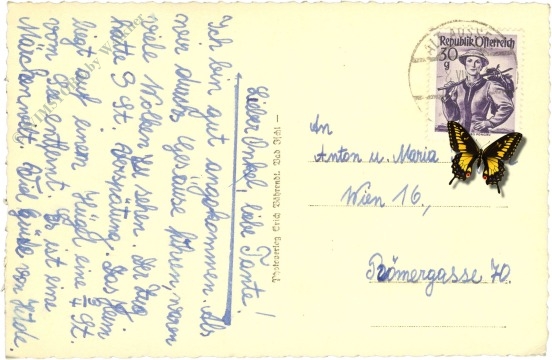 Lieber Onkel, liebe Tante!
Ich bin gut angekommen. Als
wir durchs Gesäuse fuhren, waren
viele Wolken zu sehen. Der Zug
hatte 9 St. Verspätung. Das Heim
liegt auf einem Hügel eine ¾ St.
vom See entfernt. Es ist eine
Märchenwelt. Viel Grüße von
Photoverlag Erich Bährendt, Bad Ischl
Republik Österreich
30
g
An
Anton u. Maria
Wien 16.,
Römergasse 70